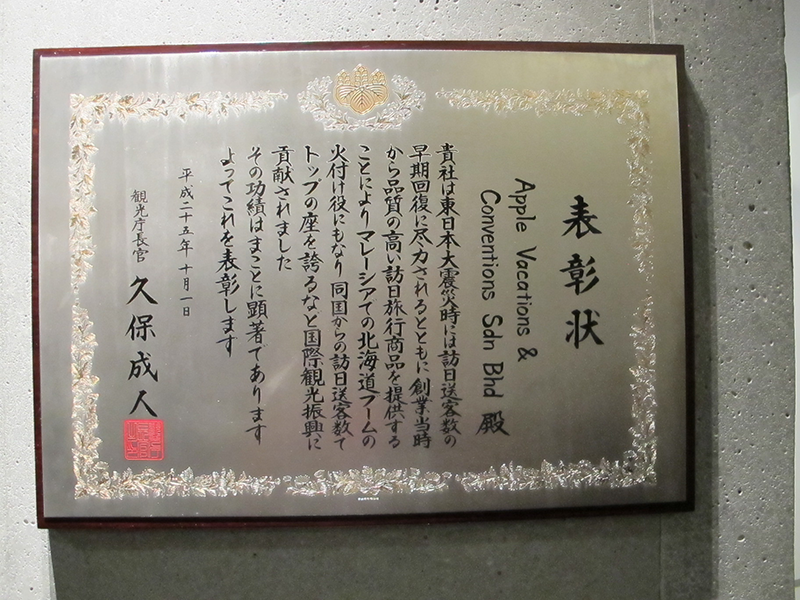 表彰状
Apple Vacations &
Conventions Sdn Bhd 殿
貴社は東日本大震災時には訪日送客数の
早期回復に尽力されるとともに創業当時
から品質の高い訪日旅行商品を提供する
ことによりマレーシアでの北海道ブームの
火付け役にもなり同国からの訪日送客数で
トップの座を誇るなど国際観光振興に
貢献されました
その功績はまことに顕著であります
よってこれを表彰します
平成二十五年十月一日
観光庁長官 久保成人